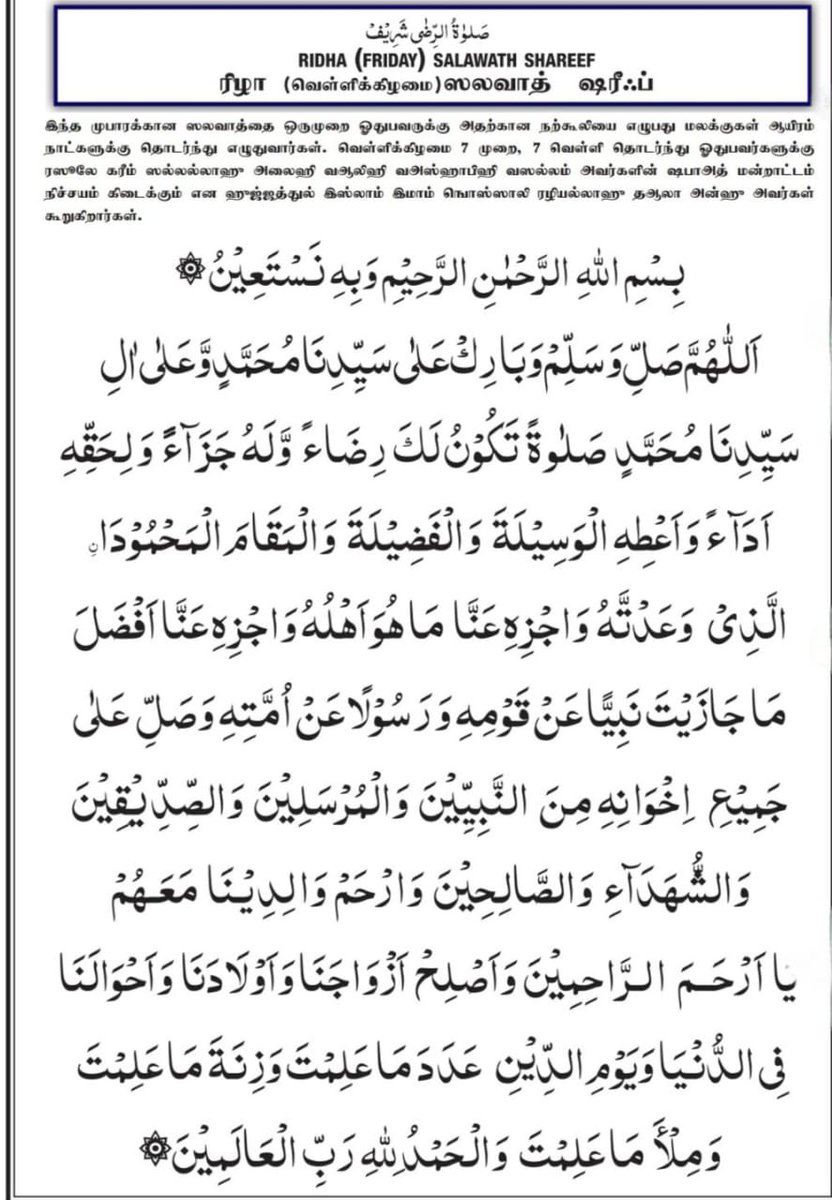 صَلٰوةُ الرِّضٰى شَرِيْفْ
RIDHA (FRIDAY) SALAWATH SHAREEF
ரிழா (வெள்ளிக்கிழமை) ஸலவாத் ஷரீஃப்
இந்த முபாரக்கான ஸலவாத்தை ஒருமுறை ஓதுபவருக்கு அதற்கான நற்கூலியை எழுபது மலக்குகள் ஆயிரம்
நாட்களுக்கு தொடர்ந்து எழுதுவார்கள். வெள்ளிக்கிழமை 7 முறை, 7 வெள்ளி தொடர்ந்து ஓதுபவர்களுக்கு
ரஸூலே கரீம் ஸல்லல்லாஹு அலைஹி வஆலிஹி வஅஸ்ஹாபிஹி வஸல்லம் அவர்களின் ஷபாஅத் மன்றாட்டம்
நிச்சயம் கிடைக்கும் என ஹுஜ்ஜத்துல் இஸ்லாம் இமாம் ஙொஸ்ஸாலி ரழியல்லாஹு தஆலா அன்ஹு அவர்கள்
கூறுகிறார்கள்.
بِسْمِ اللهِ الرَّحْمٰنِ الرَّحِيْمِ وَبِهِ نَسْتَعِيْنُ ۞
اَللّٰهُمَّ صَلِّ وَسَلِّمْ وَبَارِكْ عَلٰى سَيِّدِنَا مُحَمَّدٍ وَّعَلٰى اٰلِ
سَيِّدِنَا مُحَمَّدٍ صَلٰوةً تَكُوْنُ لَكَ رِضَاءً وَّلَهُ جَزَآءً وَلِحَقِّهِ
اَدَآءً وَاَعْطِهِ الْوَسِيْلَةَ وَالْفَضِيْلَةَ وَالْمَقَامَ الْمَحْمُوْدَانِ
الَّذِىْ وَعَدْتَّهُ وَاجْزِهِ عَنَّا مَا هُوَ اَهْلُهُ وَاجْزِهِ عَنَّا اَفْضَلَ
مَا جَازَيْتَ نَبِيًّا عَنْ قَوْمِهِ وَرَسُوْلًا عَنْ اُمَّتِهِ وَصَلِّ عَلٰى
جَمِيْعِ اِخْوَانِهِ مِنَ النَّبِيِّيْنَ وَالْمُرْسَلِيْنَ وَالصِّدِّيْقِيْنَ
وَالشُّهَدَآءِ وَالصَّالِحِيْنَ وَارْحَمْ وَالِدِيْنَا مَعَهُمْ
يَا اَرْحَمَ الرَّاحِمِيْنَ وَاَصْلِحْ اَزْوَاجَنَا وَاَوْلَادَنَا وَاَحْوَالَنَا
فِى الدُّنْيَا وَيَوْمِ الدِّيْنِ عَدَدَ مَا عَلِمْتَ وَزِنَةَ مَا عَلِمْتَ
وَمِلْأَ مَا عَلِمْتَ وَالْحَمْدُ لِلّٰهِ رَبِّ الْعَالَمِيْنَ ۞